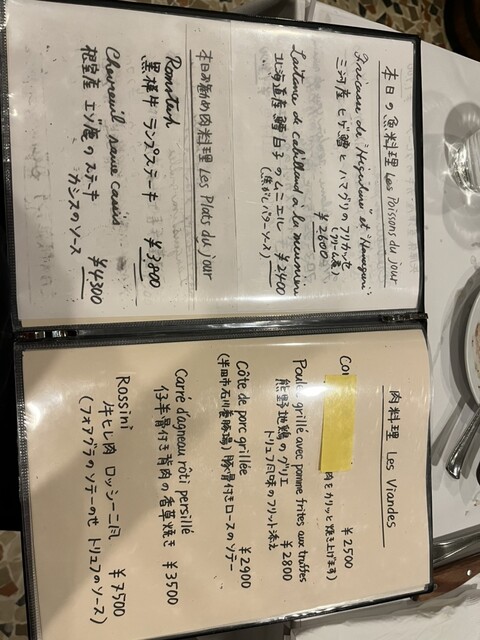 本日の魚料理 Les Poissons du jour
Fricassée de "Higedara" et "Hamaguri"
三河産 ヒゲ鱈とハマグリのフリカッセ
(クリーム煮)
¥2600
Laitance de Cabillaud à la meunière
北海道産 鱈白子のムニエル ¥2400
(焦がしバターソース)
本日お勧め肉料理 Les Plats du jour
Romsteck
黒種牛 ランプステーキ ¥3,800
Chevreuil sauce cassis
根室産 エゾ鹿のステーキ
カシスのソース ¥4,300
肉料理 Les Viandes
肉をカリッと焼き上げます)
¥2500
Poulet grillé avec pomme frites aux truffes
熊野地鶏のグリエ
トリュフ風味のフリット添え
¥2800
Côte de porc grillée
(半田市石川養豚場) 豚骨付きロースのソテー
¥2900
Carré d'agneau rôti persillé
仔羊骨付き背肉の香草焼き ¥3500
Rossini
牛ヒレ肉 ロッシーニ風 ¥7500
(フォアグラのソテーのせ トリュフのソース)